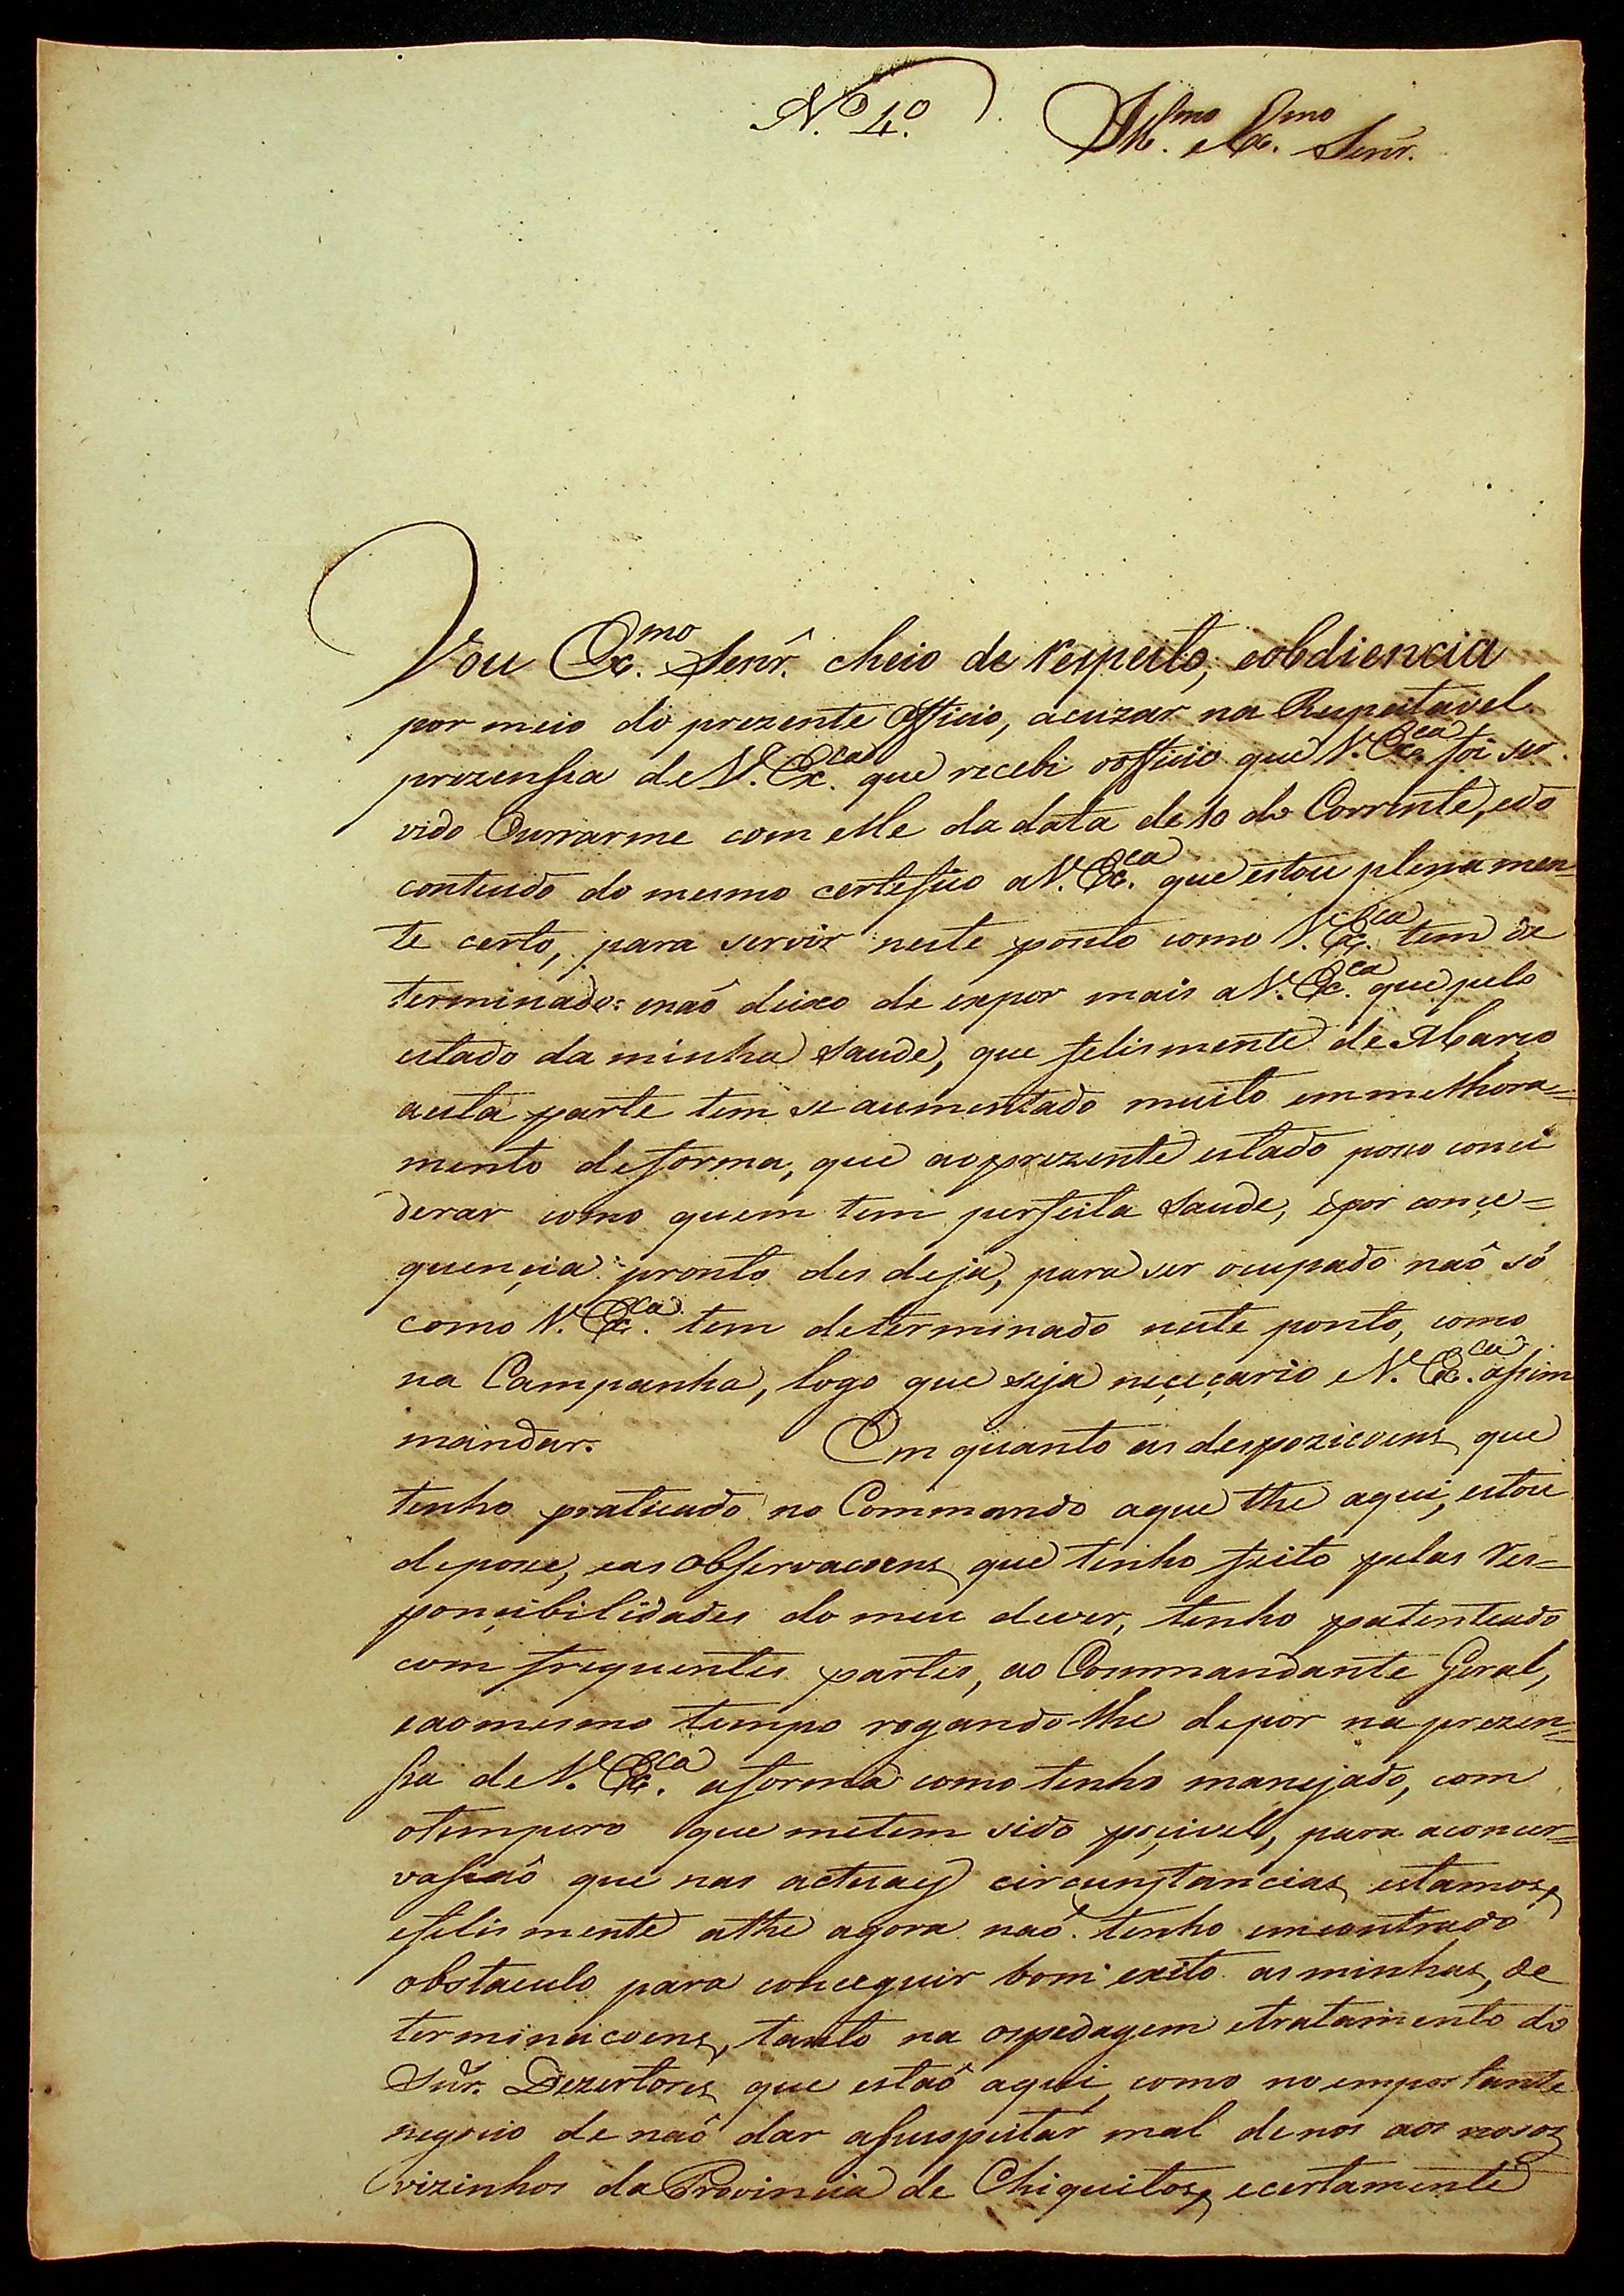 N.º 4.º Ill.mo e Ex.mo Senr.
Vou Ex.mo Senr. cheio de respeito, eobdiencia
por meio do prezente Officio, acuzar na Respeitavel
prezensia de V. Ex.ca que recebi oofficio que V. Ex.ca foi ser
vido Onrrarme com elle da data de 10 do Corrente, edo
conteudo do mesmo certefico a V. Ex.ca que estou plenamen=
te certo, para servir neste ponto como V. Ex.ca tem de
terminado: enaõ deixo de expor mais a V. Ex.ca que pelo
estado da minha saude, que felismente de Março
aesta parte tem se aumentado muito em melhora=
mento deforma, que aoprezente estado poso conci
derar como quem tem perfeita saude, epor conçe=
quençia pronto des deja, para ser ocupado naõ só
como V. Ex.ca tem determinado neste ponto, como
na Campanha, logo que seja neçeçario e V. Ex.ca assim
mandar. Em quanto as despozicoens que
tenho praticado no Commando aque the aqui, estou
depose, eas observacoens que tenho feito pelas res=
ponçibilidades do meu dever, tenho patenteado
com frequentes partes, ao Commandante Geral,
eaomesmo tempo rogandolhe depor na prezen=
sia de V. Ex.ca aforma como tenho manejado, com
otempero que metem sido poçivel, para aconcer=
vasaõ que nas actuaes circunstancias estamos,
efelismente athe agora naõ tenho encontrado
obstaculo para conceguir bom exito as minhas de
terminacoens, tanto na ospedagem etratamento do
Snr. Dezertores que estaõ aqui, como no emportante
negocio de naõ dar asuspeitar mal de nos aos nosos
vizinhos da Provincia de Chiquitos, ecertamente